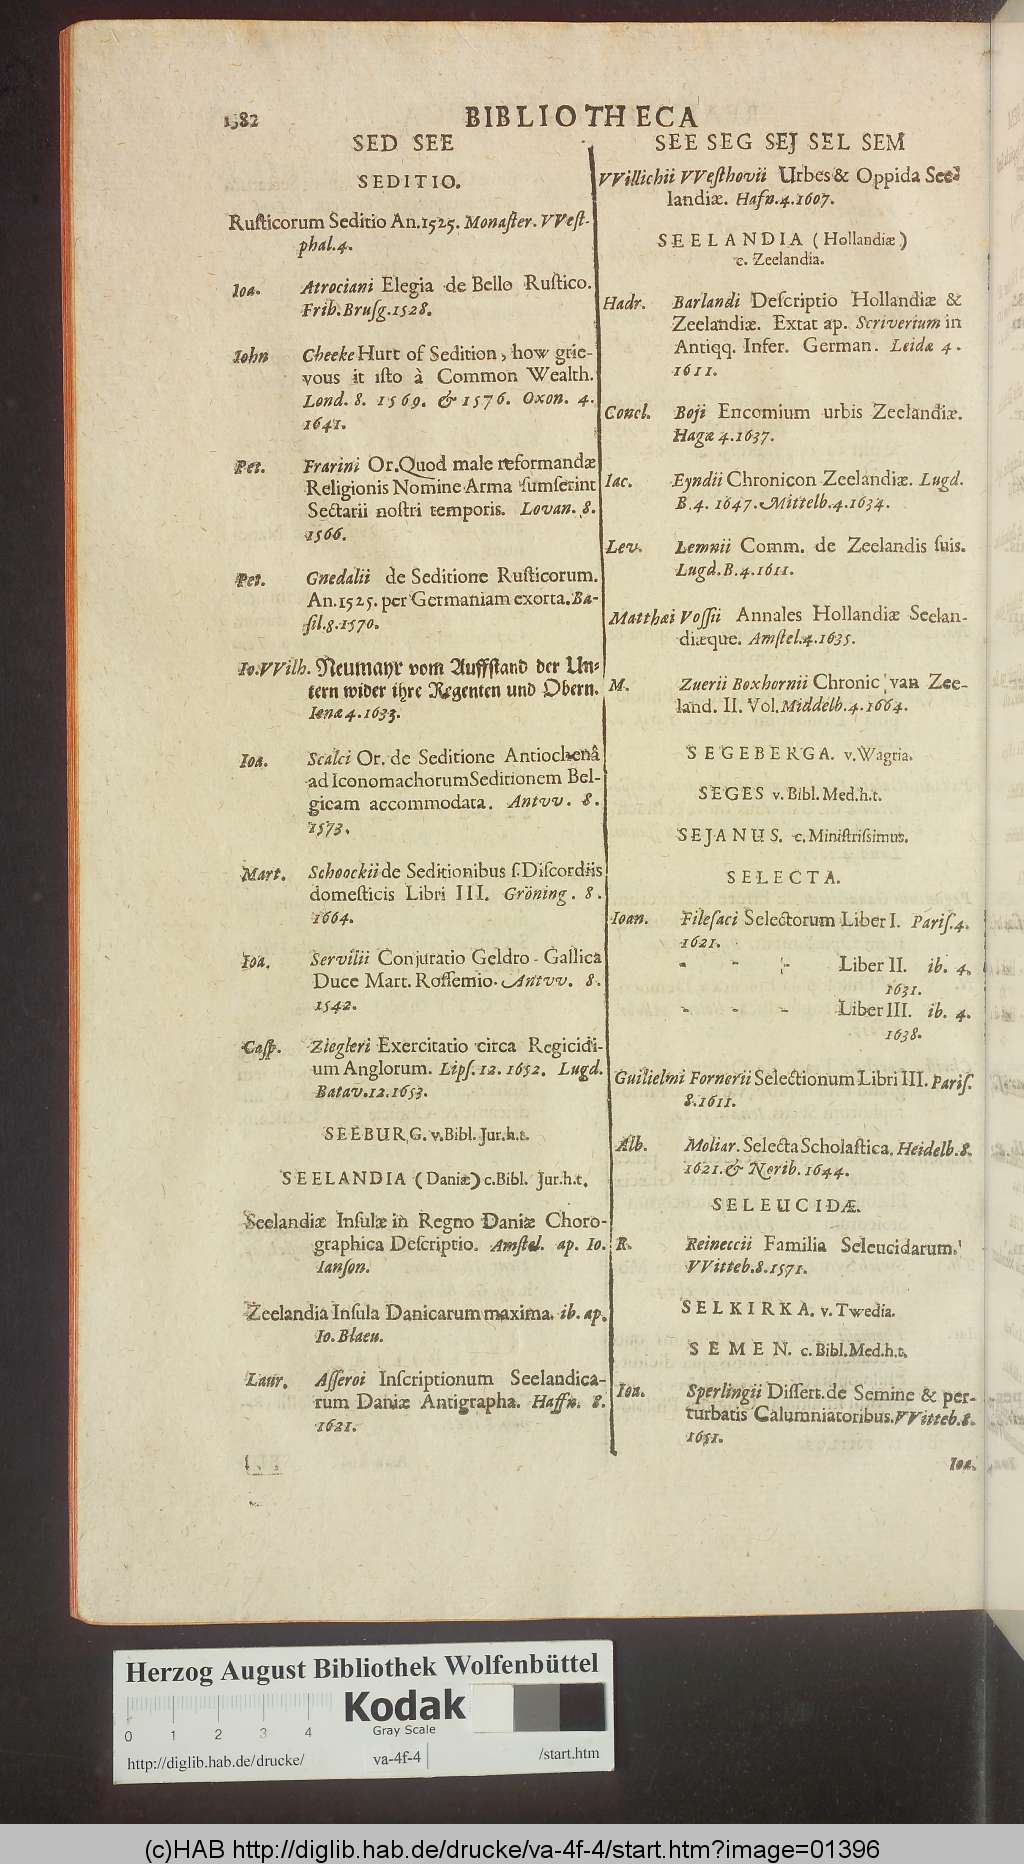 1382
BIBLIOTHECA
SED SEE
SEDITIO.
Ruſticorum Seditio An. 1525. Monaſter. VVeſt-
phal. 4.
Ioa. Atrociani Elegia de Bello Ruſtico.
Frib. Bruſg. 1528.
Iohn Cheeke Hurt of Sedition, how grie-
vous it iſto à Common Wealth.
Lond. 8. 1569. & 1576. Oxon. 4.
1641.
Pet. Frarini Or. Quod male reformandæ
Religionis Nomine Arma ſumſerint
Sectarii noſtri temporis. Lovan. 8.
1566.
Pet. Gnedalii de Seditione Ruſticorum.
An. 1525. per Germaniam exorta. Ba-
ſil. 8. 1570.
Io. VVilh. Neumayr vom Auffſtand der Un-
tern wider ihre Regenten und Obern.
Ienæ 4. 1633.
Ioa. Scalci Or. de Seditione Antiochenâ
ad Iconomachorum Seditionem Bel-
gicam accommodata. Antvv. 8.
1573.
Mart. Schoockii de Seditionibus ſ. Diſcordiis
domeſticis Libri III. Gröning. 8.
1664.
Ioa. Servilii Conjuratio Geldro-Gallica
Duce Mart. Roſſemio. Antvv. 8.
1542.
Caſp. Ziegleri Exercitatio circa Regicidi-
um Anglorum. Lipſ. 12. 1652. Lugd.
Batav. 12. 1653.
SEEBURG. v. Bibl. Jur. h. t.
SEELANDIA (Daniæ) c. Bibl. Jur. h. t.
Seelandiæ Inſulæ in Regno Daniæ Choro-
graphica Deſcriptio. Amſtel. ap. Io.
Ianſon.
Zeelandia Inſula Danicarum maxima. ib. ap.
Io. Blaeu.
Laur. Aſſeroi Inſcriptionum Seelandica-
rum Daniæ Antigrapha. Haffn. 8.
1621.
SEE SEG SEJ SEL SEM
VVillichii VVeſthovii Urbes & Oppida See-
landiæ. Hafn. 4. 1607.
SEELANDIA (Hollandiæ)
c. Zeelandia.
Hadr. Barlandi Deſcriptio Hollandiæ &
Zeelandiæ. Extat ap. Scriverium in
Antiqq. Infer. German. Leidæ 4.
1611.
Concl. Boji Encomium urbis Zeelandiæ.
Hagæ 4. 1637.
Iac. Eyndii Chronicon Zeelandiæ. Lugd.
B. 4. 1647. Mittelb. 4. 1634.
Lev. Lemnii Comm. de Zeelandis ſuis.
Lugd. B. 4. 1611.
Matthæi Voſſii Annales Hollandiæ Seelan-
diæque. Amſtel. 4. 1635.
M. Zuerii Boxhornii Chronic van Zee-
land. II. Vol. Middelb. 4. 1664.
SEGEBERGA. v. Wagria.
SEGES v. Bibl. Med. h. t.
SEJANUS. c. Miniſtriſſimus.
SELECTA.
Ioan. Fileſaci Selectorum Liber I. Pariſ. 4.
1621.
- - - Liber II. ib. 4.
1631.
- - - Liber III. ib. 4.
1638.
Guilielmi Fornerii Selectionum Libri III. Pariſ.
8. 1611.
Alb. Moliar. Selecta Scholaſtica. Heidelb. 8.
1621. & Norib. 1644.
SELEUCIDÆ.
R. Reineccii Familia Seleucidarum.
VVitteb. 8. 1571.
SELKIRKA. v. Twedia.
SEMEN. c. Bibl. Med. h. t.
Ion. Sperlingii Diſſert. de Semine & per-
turbatis Calumniatoribus. VVitteb. 8.
1651.
Ioa.
Herzog August Bibliothek Wolfenbüttel
Kodak
Gray Scale
0 1 2 3 4
http://diglib.hab.de/drucke/ va-4f-4 /start.htm
(c)HAB http://diglib.hab.de/drucke/va-4f-4/start.htm?image=01396